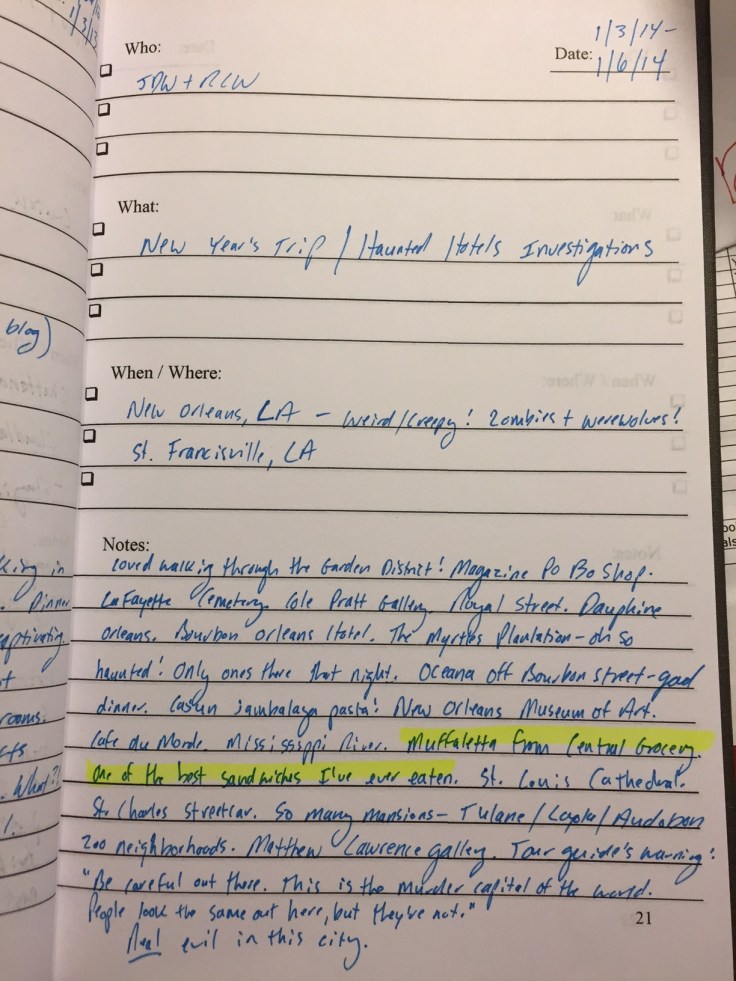 1/3/13
Who:
Date:
1/3/14-
1/6/14
JDW + RLW
What:
New Year's Trip / Haunted Hotels Investigations
blog)
When / Where:
New Orleans, LA - Weird/Creepy! Zombies + werewolves!
St. Francisville, LA
Notes:
Loved walking through the Garden District! Magazine Po Bo Shop.
LaFayette Cemetery. Cole Pratt Gallery. Royal Street. Dauphine
Orleans. Bourbon Orleans Hotel. The Myrtles Plantation - oh so
haunted! Only ones there that night. Oceana off Bourbon Street - good
dinner. Cajun jambalaya pasta! New Orleans Museum of Art.
Cafe du Monde. Mississippi River. Muffaletta from Central Grocery.
One of the best sandwiches I've ever eaten. St. Louis Cathedral.
St. Charles Streetcar. So many mansions - Tulane/Loyola/Audobon
Zoo neighborhoods. Matthew Lawrence galley. Tour guide's warning:
"Be careful out there. This is the murder capitol of the world.
People look the same out here, but they're not."
Real evil in this city.
21
king in
Dinner
captivating
rooms.
What?!